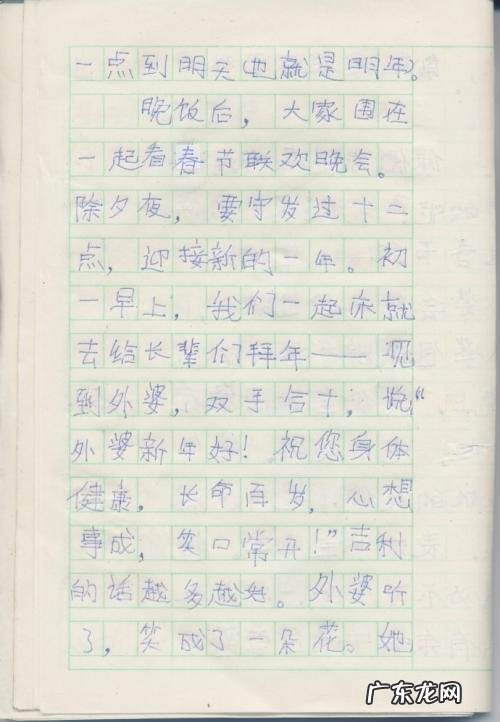 一点到明天(也就是明年)。
晚饭后，大家围在
一起看春节联欢晚会。
除夕夜，要守岁过十二
点，迎接新的一年。初
一早上，我们一起床就
去给长辈们拜年——见
到外婆，双手合十，说“
外婆新年好！祝您身体
健康，长命百岁，心想
事成，笑口常开！”吉利
的话越多越好。外婆听
了，笑成了一朵花。她
广东龙网